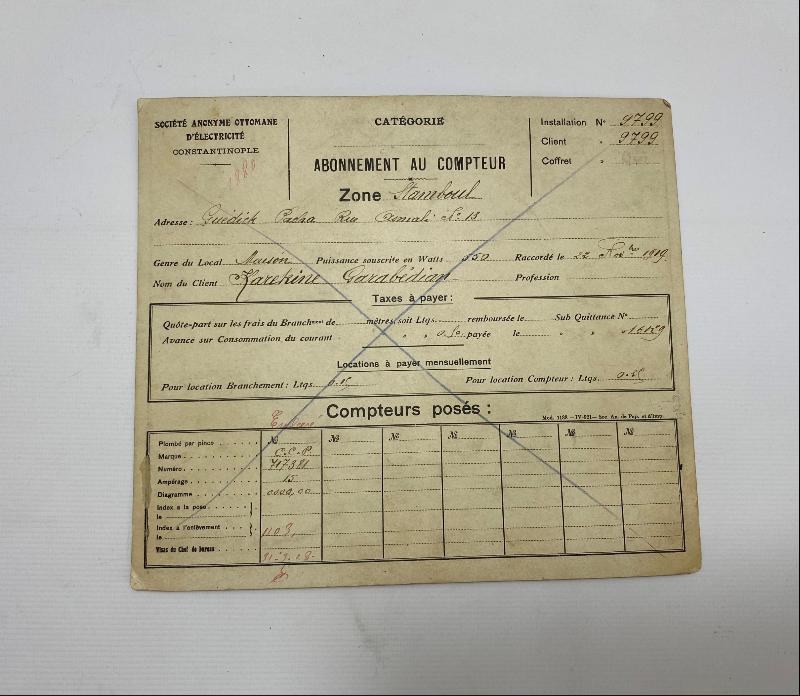 SOCIÉTÉ ANONYME OTTOMANE
D'ÉLECTRICITÉ
CONSTANTINOPLE
CATÉGORIE
ABONNEMENT AU COMPTEUR
Zone Stamboul
Installation N° 9799
Client " 9799
Coffret "
Adresse: Guédick Pacha Rue Asmali No 13
Genre du Local Maison Puissance souscrite en Watts 550 Raccordé le 22 Nov bre 1919
Nom du Client Karekine Garabédian Profession
Taxes à payer:
Quôte-part sur les frais du Branchment de mètres, soit Ltqs. remboursée le Sub Quittance N°
Avance sur Consommation du courant " " 0.50 payée le " " " 16129
Locations à payer mensuellement
Pour location Branchement: Ltqs. Pour location Compteur: Ltqs.
Compteurs posés:
Mod. 1188 — IV-921 — Soc. An. de Pap. et d'Imp.
Plombé par pince No No No No No No No
Marque C.C.P.
Numéro 707381
Ampérage 15
Diagramme 0000,00
Index à la pose
le
Index à l'enlèvement 1103,
le
Visas du Chef de bureau 11-3-28-